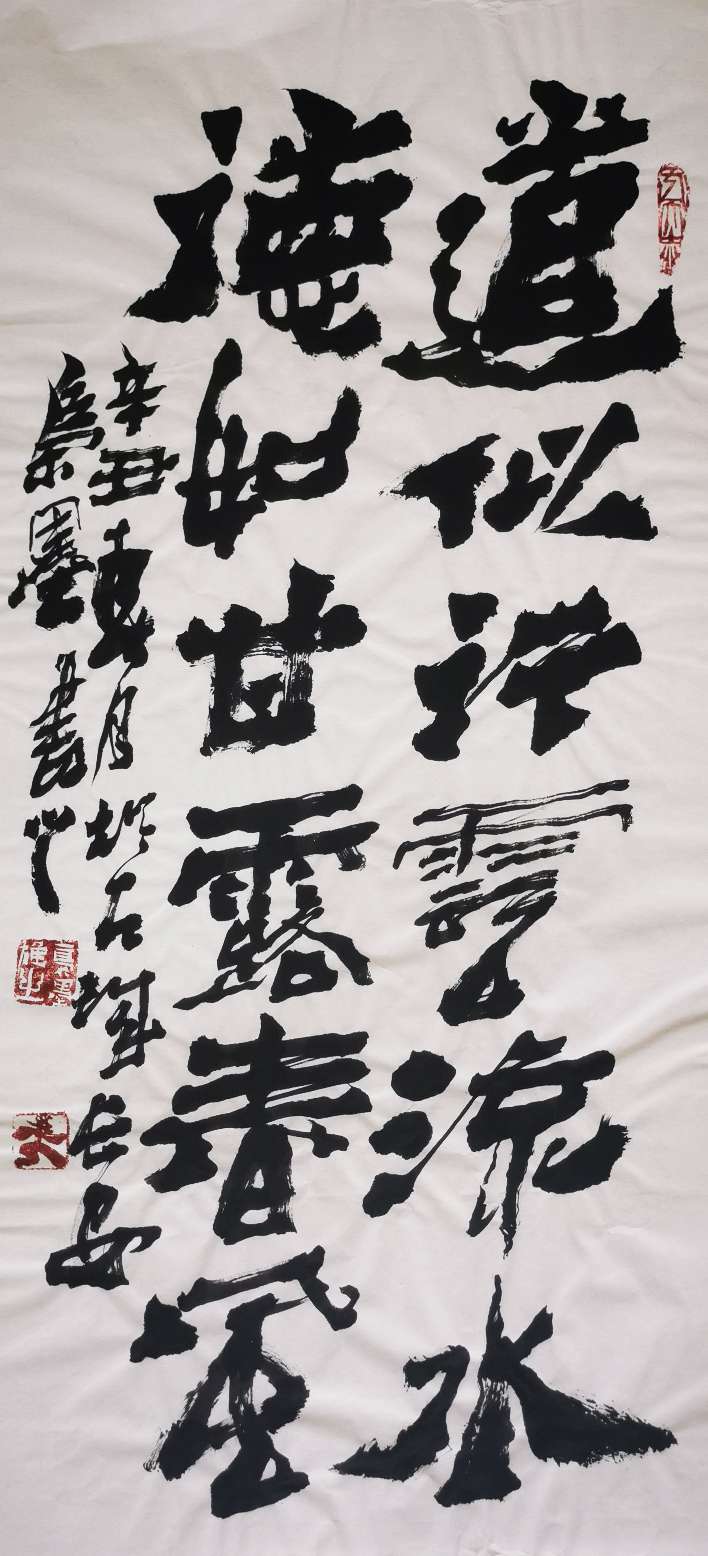 道似行雲流水
德如甘露春風
辛丑春月於古城長安
墨書